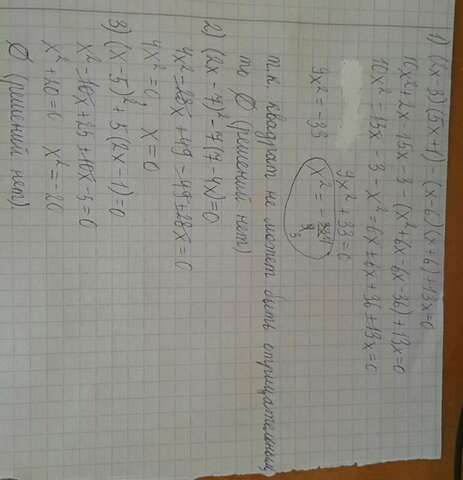 1) (2x-3)(5x+1)-(x-6)(x+6)+13x=0
10x²+2x-15x-3-(x²+6x-6x-36)+13x=0
10x²-13x-3-x²-6x+6x+36+13x=0
9x²+33=0
9x²=-33 x²=-
т.к. квадрат не может быть отрицательным,
то Ø (решений нет)
2) (2x-7)²-7(7-4x)=0
4x²-28x+49-49+28x=0
4x²=0 x=0
3) (x-5)²+5(2x-1)=0
x²-10x+25+10x-5=0
x²+20=0 x²=-20
Ø (решений нет)